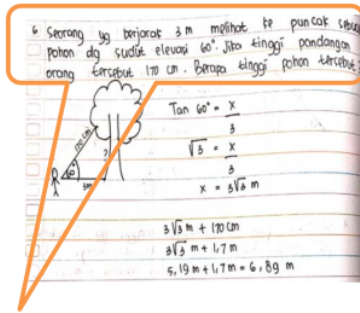 6 Seorang yg berjarak 3 m melihat ke puncak sebua
pohon dg sudut elevasi 60°. Jika tinggi pandangan
orang tersebut 170 cm. Berapa tinggi pohon tersebut?
Tan 60° = x/3
√3 = x/3
x = 3√3 m
170 cm
60°
?
3m
3√3 m + 170 cm
3√3 m + 1,7 m
5,19 m + 1,7 m = 6,89 m